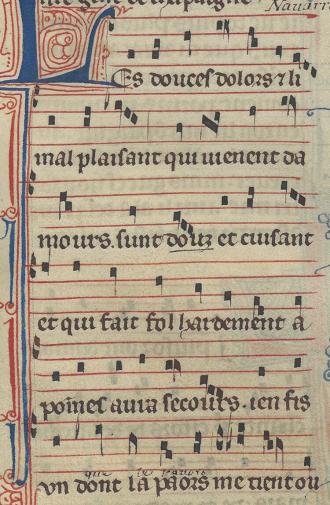 Navarre
Les douces dolors ⁊ li
mal plaisant qui uienent da
mours. sunt doutz et cuisant
et qui fait fol hardement a
poines aura secours. ien fis
vn dont la paors me tient ou